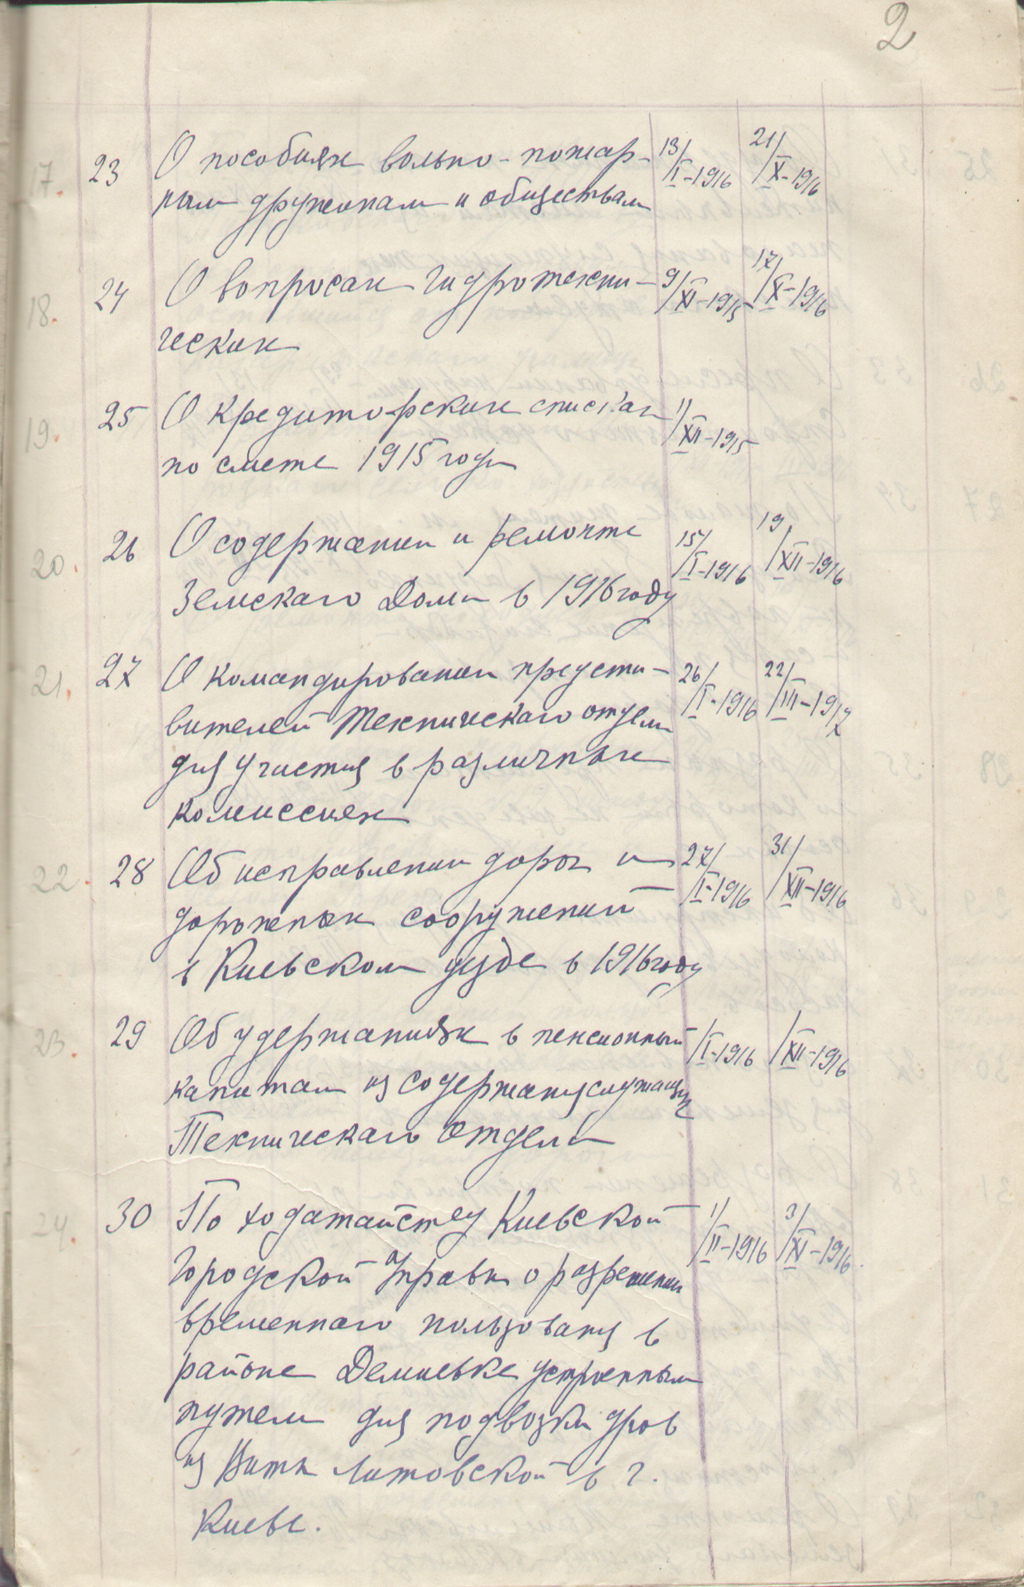 2
7. 23 О пособиях вольно-пожар- 13/I-1916 21/X-1916
ным дружинам и обществам
18. 24 О вопросах гидротехни- 9/XI-1915 17/X-1916
ческих
19. 25 О кредиторских списках 1/XII-1915
по смете 1915 года
20. 26 О содержании и ремонте 15/I-1916 19/XII-1916
Земского Дома в 1916 году
21. 27 О командировании предста- 26/I-1916 22/III-1917
вителей Технического отдела
для участия в различных
комиссиях
22. 28 Об исправлении дорог и 27/I-1916 31/XII-1916
дорожных сооружений
в Киевском уезде в 1916 году
23. 29 Об удержаниях в пенсионный /I-1916 /XII-1916
капитал из содержания служащих
Технического Отдела
24. 30 По ходатайству Киевской 1/II-1916 3/XI-1916
Городской Управы о разрешении
временного пользования в
районе Демиевке устроенным
путем для подвозки дров
из Литовской в г.
Киеве.